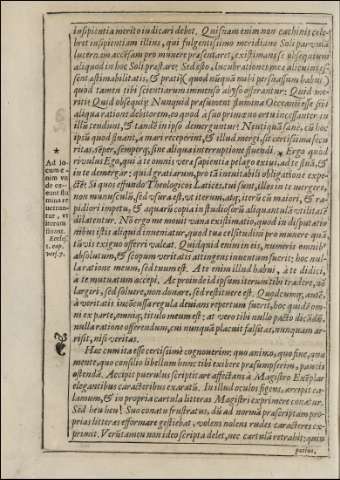 insipientia merito iudicari debet. Quisnam enim non cachinis cele-
bret insipientiam illius, qui fulgentissimo meridiano Soli paruulã
lucernam accẽsam pro munere præsentaret, existimans se obsequium
aliquod in hoc Soli præstare? Sed esto,
sent æstimabilitatis, & pratij (quod nũquã mihi persuassum habui)
quod tamen tibi scientiarum immenso abyso offerantur: Quid me-
ritij? Quid obsequij? Nunquid præsument flumina Occeani esse sibi
aliqua ratione debitorem, eo quod ab eo primæuo ortu incessãter in
illũ tendunt, & tandẽ in ipso demerguntur? Neutiquã sane, cũ hoc
ipsũ quod fluant, a mari receperint, & illud mergi, sit certissima secu
ritas, sẽper, semperq; sine aliqua interruptione fluendi. * Ergo quod
riuulus Ego, qui a te omni vera sapientia pelago exiui, ad te fluã, &
in te demergar: quid gratiarum, pro tã intuitabili obligatione expe-
ctẽt? Si quos effundo Theologicos Latices, tui sunt, illos in te vergero,
non munusculũ, sed vsura est, vt iterum, atq; iterũ cũ maiori, & ra-
pidiori impetu, & aquarũ copia in studiosorũ aliquantulã vtilitatẽ
dilatentur. Nõ ergo me mouit vana existimatio, quod in disputatio
nibus istis aliquid inueniatur, quod tua celsitudini pro munere quã-
tũ vis exiguo offerri valeat. Quidquid enim in eis, numeris omnibus
absolutum, & scopum veritatis attingens inuentum fuerit; hoc nul-
la ratione meum, sed tuum est. A te enim illud habui, a te didici,
à te mutatum accepi. At proinde id ipsum iterum tibi tradere, nõ
largiri, sed soluere, non donare, sed restituere est. Quodcumq; autẽ,
à veritatis inoccussa regula deuians repertum fuerit, hoc quidẽ om-
ni ex parte, meũq; titulo meum est; at vero tibi nullo pacto dicãdũ,
nulla ratione offerendum, cui nunquã placuit falsitas, nunquam ar-
risit, nisi veritas.
Hæc cum ita esse certissimè cognouerim: quo animo, quo fine, qua
mente, quo consilio libellum hunc tibi exibere præsumpserim, paucis
ostendã. Accipit puerulus scriptitare affectans à Magistro Exẽplar
elegantibus caracteribus exaratũ. In illud oculos figens, arripit ca-
lamum, & in propria cartula litteras Magistri exprimere conatur.
Sed heu heu! Suo conatu frustratus, dũ ad normã præscriptam pro-
prias litteras efformare gestiebat, volens nolens rudes caracteres ex-
primit. Verũtamen non ideo scripta delet, nec cartulã retrahit; quin
potius,
*
Ad lo-
cum e-
nim vn
de ex-
eunt flu
mina re
uertun-
tur, vt
iterum
fluant.
Eccles.
1. cap.
vers. 7.